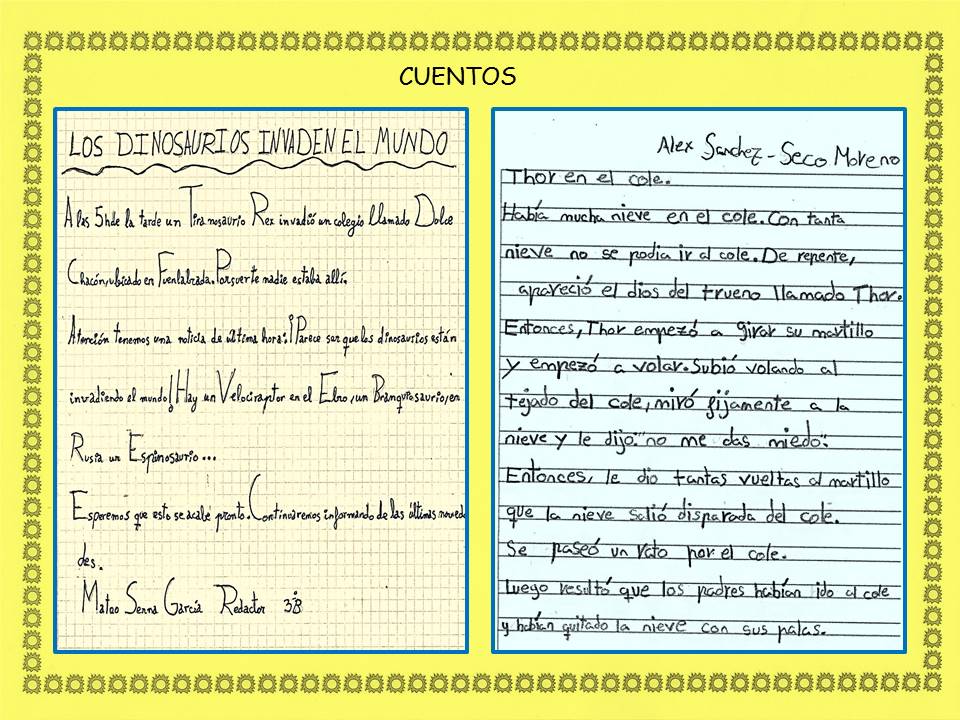 CUENTOS
LOS DINOSAURIOS INVADEN EL MUNDO
A las 5h de la tarde un Tiranosaurio Rex invadió un colegio llamado Dolce
Chacón, ubicado en Fuenlabrada. Por suerte nadie estaba allí.
Atención tenemos una noticia de última hora: ¡Parece ser que los dinosaurios están
invadiendo el mundo! Hay un Velociraptor en el Ebro, un Branquiosaurio, en
Rusia un Espinosaurio...
Esperemos que esto se acabe pronto. Continuaremos informando de las últimas noveda
des.
Mateo Serna García Redactor 3ºB
Alex Sanchez-Seco Moreno
Thor en el cole.
Había mucha nieve en el cole. Con tanta
nieve no se podia ir al cole. De repente,
apareció el dios del trueno llamado Thor.
Entonces, Thor empezó a girar su martillo
y empezó a volar. Subió volando al
tejado del cole, miró fijamente a la
nieve y le dijo: "no me das miedo".
Entonces, le dio tantas vueltas al martillo
que la nieve salió disparada del cole.
Se paseó un rato por el cole.
Luego resultó que los padres habían ido al cole
y habían quitado la nieve con sus palas.